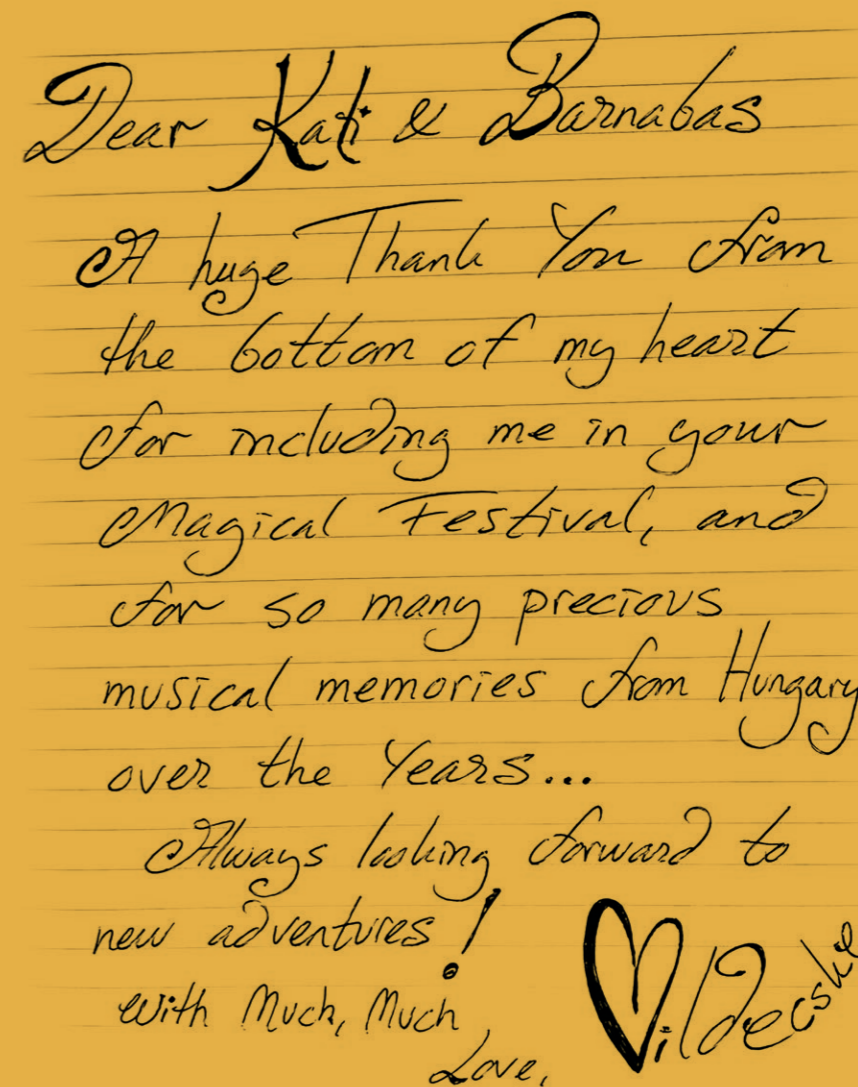 Dear Kati & Barnabas
A huge Thank You from
the bottom of my heart
for including me in your
Magical Festival, and
for so many precious
musical memories from Hungary
over the Years...
Always looking forward to
new adventures!
With Much, Much
Love,